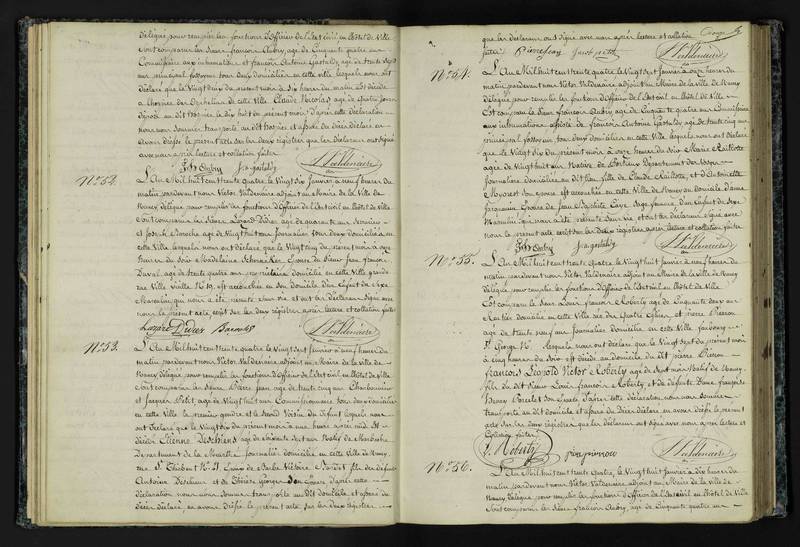 délégué pour remplir les fonctions d'Officier de l'Etat civil en l'hôtel de Ville
Sont comparus les Sieurs françois Aubry, agé de Cinquante quatre ans
Commissaire aux inhumations et françois Antoine Gastaldy, agé de trente cinq
ans, principal fossoyeur tous deux domiciliés en cette ville, lesquels nous ont
déclaré que le Vingt deux du present mois à six heures du matin est décédé
à l'hospice des Orphelins de cette Ville Claude Nicolas, agé de quatre jours
déposé au dit hospice le dix huit du présent mois, d'après cette déclaration
nous nous sommes transporté au dit hospice et assuré du décès déclaré en
avons dressé le present acte sur les deux registres que les déclarans ont signé
avec nous après lecture et collation faites
fs Aubry fra gastaldy Valdenaire
N° 52. L'An Mil huit cent trente quatre le Vingt six Janvier à neuf heures du
matin pardevant nous Victor Valdenaire adjoint au Maire de la Ville de
Nancy délégué pour remplir les fonctions d'Officier de l'Etat civil en l'hôtel de Ville
Sont comparus les Sieurs Lazard Didier agé de quarante ans
et Joseph agé de vingt huit ans Journalier tous deux domiciliés en
cette Ville lesquels nous ont déclaré que le Vingt cinq du present mois à onze
heures du soir Madelaine Schneider, Epouse du Sieur Jean françois
Duval, agé de trente quatre ans, propriétaire domicilié en cette Ville grande
rue Ville Vieille N° 19, est accouchée en son domicile d'un Enfant du sexe
Masculin qui nous a été présenté sans vie et ont les déclarans signé avec
nous le present acte écrit sur les deux registres après lecture et collation faites
Lazare Didier Valdenaire
N° 53. L'An Mil huit cent trente quatre le Vingt sept Janvier à neuf heures du
matin pardevant nous Victor Valdenaire adjoint au Maire de la Ville de
Nancy délégué pour remplir les fonctions d'Officier de l'Etat civil en l'hôtel de Ville
Sont comparus les Sieurs Pierre Jean, agé de trente cinq ans Charbonnier
et Jacques Petit, agé de Vingt huit ans Commissionnaire tous deux domiciliés
en cette Ville le premier gendre et le Second Voisin du Défunt lesquels nous
ont déclaré que le Vingt six du present mois à une heure après midi est
décédé Etienne Deschiens agé de soixante sept ans Natif de
Département de la Meurthe Journalier domicilié en cette Ville de Nancy
rue St Thiébaut N° 21, Epoux de Barbe Victoire fils des défunts
Antoine Deschiens et de Thérèse George son Epouse d'après cette
déclaration nous nous sommes transporté au dit domicile et assuré du
décès déclaré, en avons dressé le présent acte sur les deux registres
que les déclarans ont signé avec nous après lecture et collation
faites Pierre Jean Jacob petit Valdenaire
N° 54. L'An Mil huit cent trente quatre le Vingt sept Janvier à onze heures du
matin pardevant nous Victor Valdenaire adjoint au Maire de la Ville de Nancy
délégué pour remplir les fonctions d'Officier de l'Etat civil en l'hôtel de Ville
Est comparu le Sieur françois Aubry agé de Cinquante quatre ans Commissaire
aux inhumations assisté de françois Antoine Gastaldy agé de trente cinq ans
principal fossoyeur tous deux domiciliés en cette Ville, lesquels nous ont déclaré
que le Vingt six du présent mois à onze heures du soir Marie
agée de Vingt huit ans Native de Département des Vosges
Journalière domiciliée au dit lieu fille de Claude et d'Antoinette
son épouse est accouchée en cette Ville de Nancy au Domicile de Dame
françoise Epouse de Jean Baptiste Caye Sage femme, d'un Enfant du Sexe
Masculin qui nous a été présenté sans vie et ont les déclarans signé avec
nous le présent acte écrit sur les deux registres après lecture et collation faites
fs Aubry fra gastaldy Valdenaire
N° 55. L'An Mil huit cent trente quatre le Vingt sept Janvier à neuf heures du
matin pardevant nous Victor Valdenaire adjoint au Maire de la Ville de Nancy
délégué pour remplir les fonctions d'Officier de l'Etat civil en l'hôtel de Ville
Est comparu le Sieur Louis françois Roberty agé de Cinquante deux ans
Rentier domicilié en cette Ville rue des quatre Eglises et pierre Pierron
agé de trente neuf ans Journalier domicilié en cette Ville faubourg
St George N° lesquels nous ont déclaré que le Vingt sept du présent mois
à cinq heures du soir est décédé au domicile du dit pierre Pierron
François Léopold Victor Roberty agé de sept mois Natif de Nancy,
fils du dit Sieur Louis françois Roberty et de défunte Dame françoise
son Epouse d'après cette déclaration nous nous sommes
transporté au dit domicile et assuré du Décès déclaré en avons dressé le présent
acte sur les deux registres que les déclarans ont signé avec nous après lecture et
Collation faites
Roberty pierre pierron Valdenaire
N° 56. L'An Mil huit cent trente quatre, le Vingt sept Janvier à dix heures du
matin pardevant nous Victor Valdenaire adjoint au Maire de la Ville de
Nancy délégué pour remplir les fonctions d'Officier de l'Etat civil en l'hôtel de Ville
Sont comparus les Sieurs françois Aubry, agé de Cinquante quatre ans